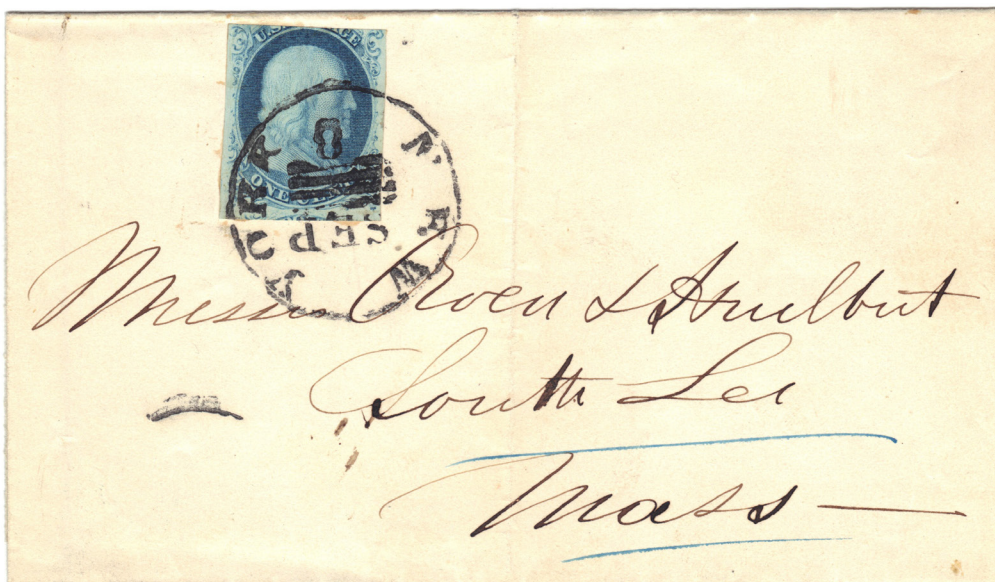 U.S. POSTAGE
ONE CENT
NEW YORK
SEP 20
Messrs Owen & Hurlbut
South Lee
Mass